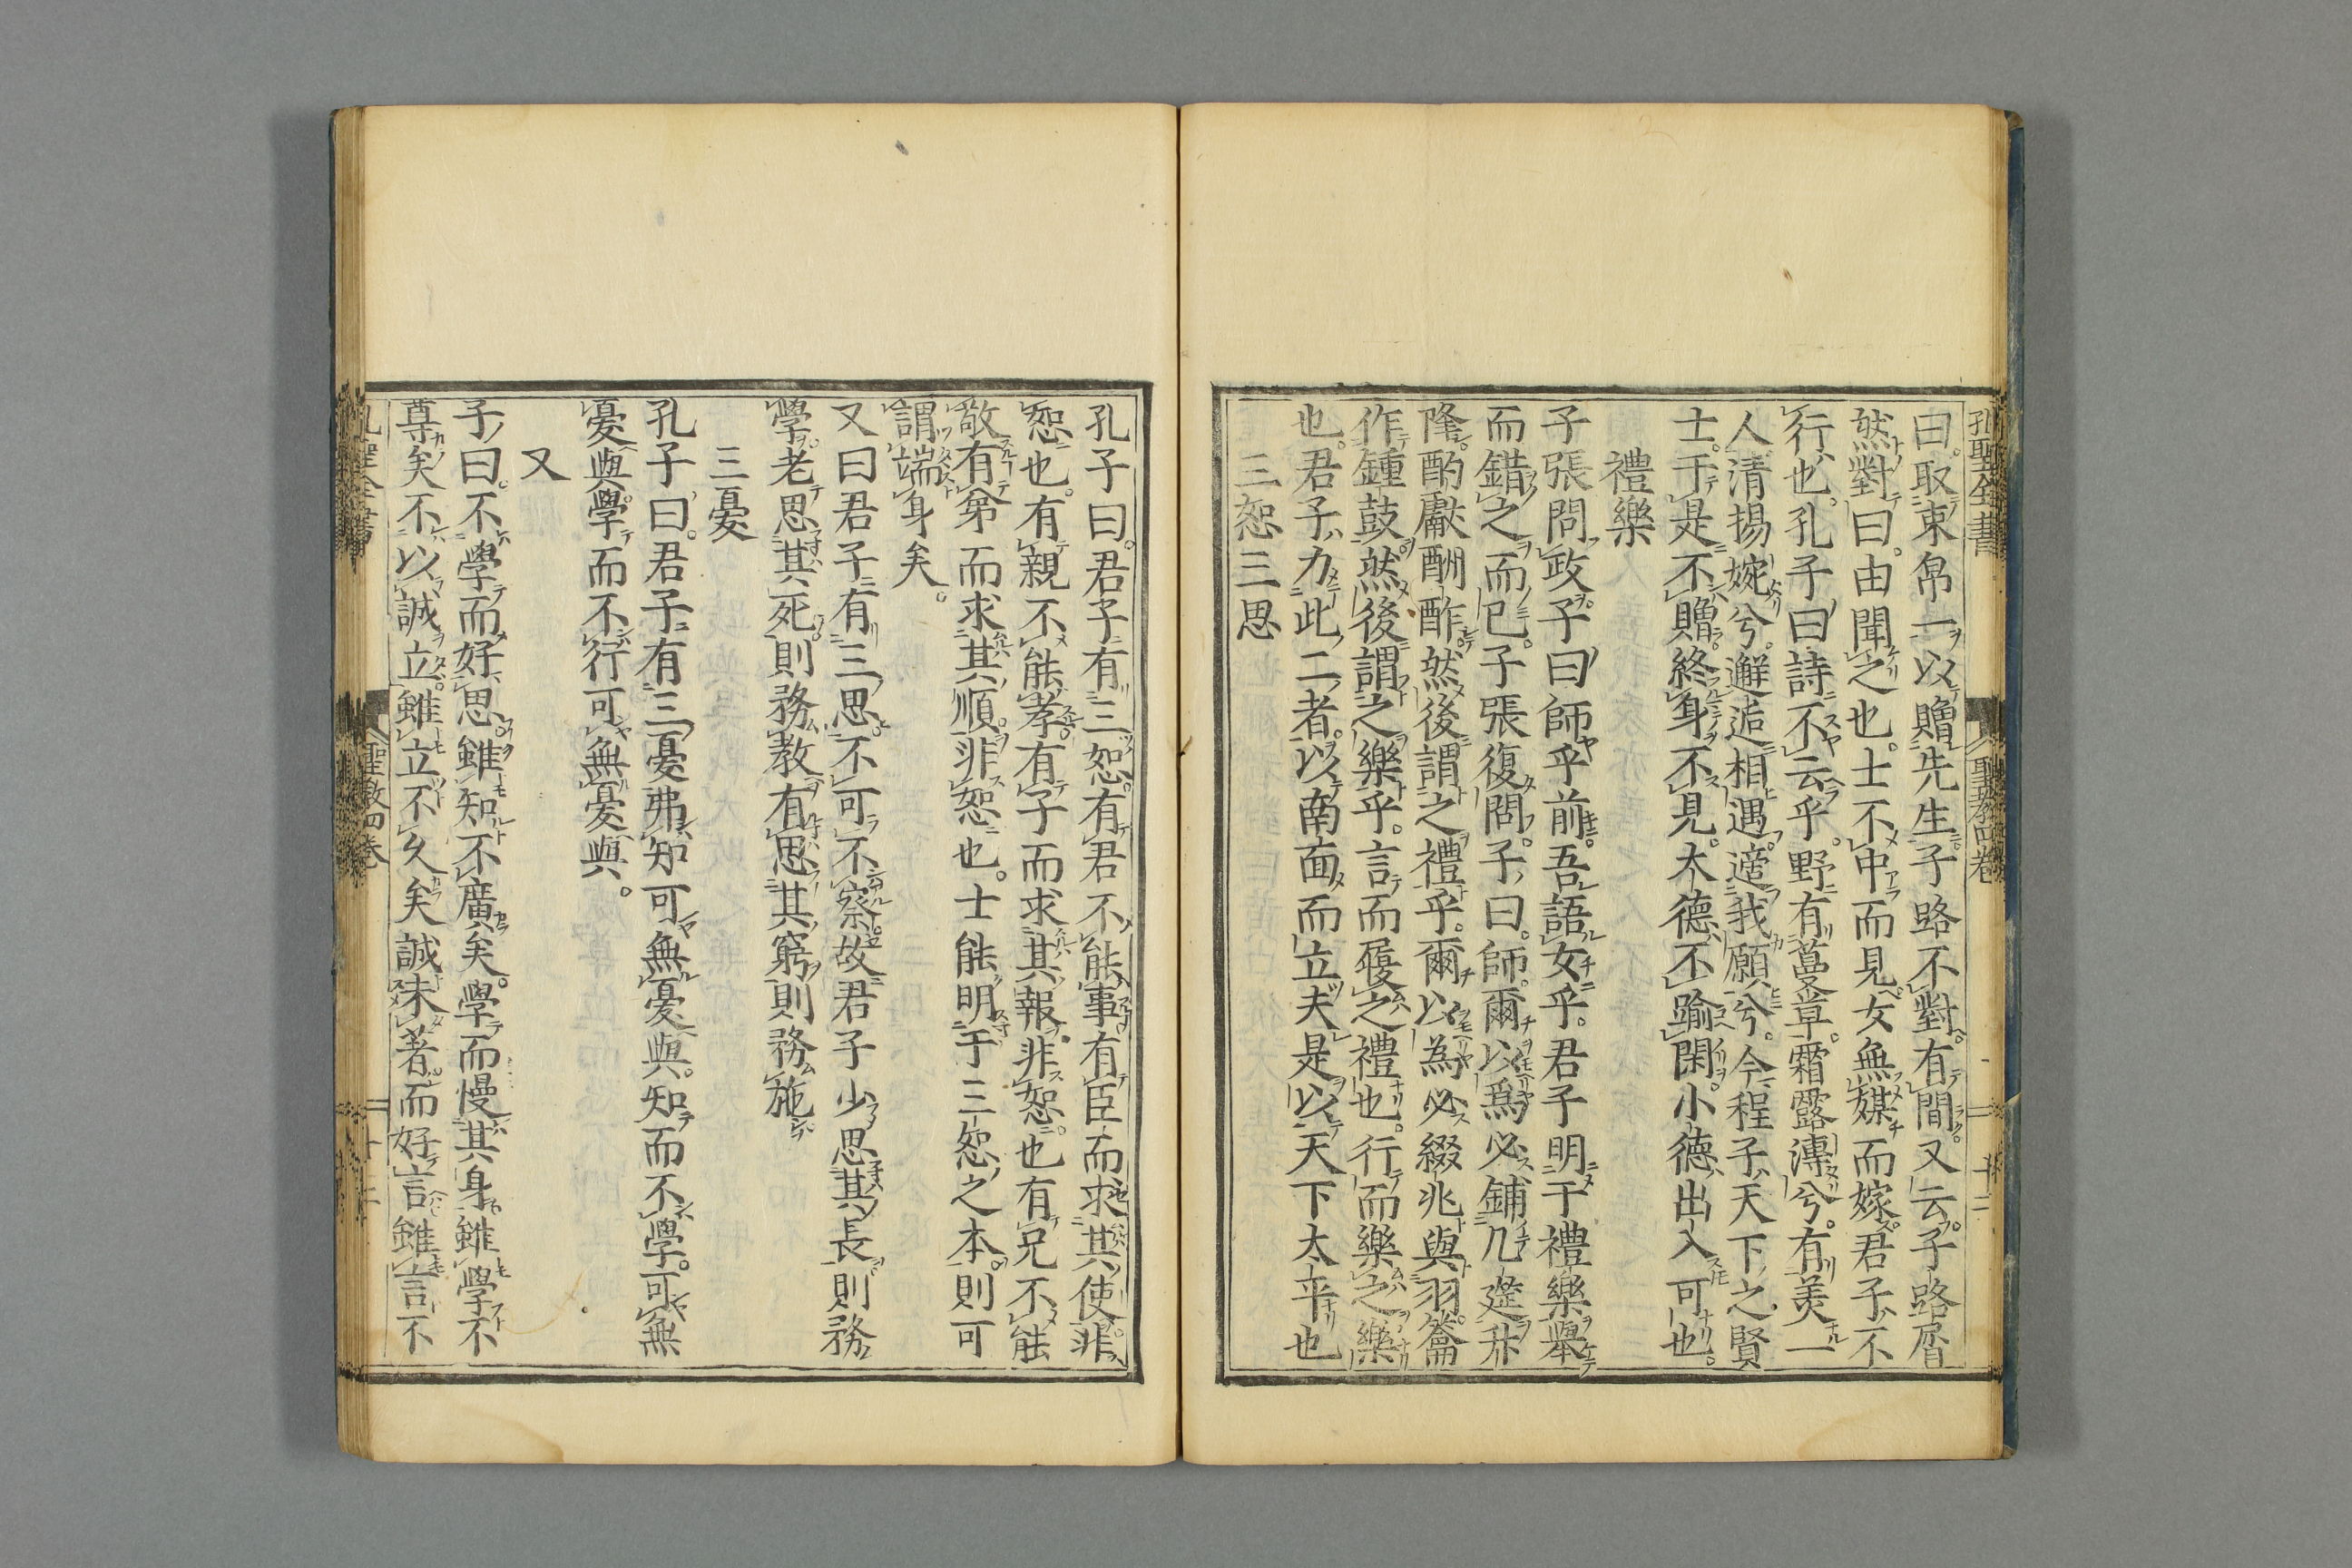 孔聖全書 聖教四卷 十二
曰。取束帛一以贈先生。子路不對。有間。又云。子路屑
然對曰。由聞之也。士不中而見。女無媒而嫁。君子不
行也。孔子曰。詩不云乎。野有蔓草。零露漙兮。有美一
人。清揚婉兮。邂逅相遇。適我願兮。今程子。天下之賢
士。于是不贈。終身不見。大德不踰閑。小德出入可也。
禮樂
子張問政。子曰師乎前。吾語女乎。君子明于禮樂。舉
而錯之而已。子張復問。子曰。師。爾以爲必鋪几筵升
隆。酌獻酬酢。然後謂之禮乎。爾以為必綴兆與羽籥
作鍾鼓。然後謂之樂乎。言而履之禮也。行而樂之樂
也。君子力此二者。以南面而立夫是以天下太平也
三恕三思
孔子曰。君子有三恕。有君不能事。有臣而求其使。非
恕也。有親不能孝。有子而求其報。非恕也有兄不能
敬。有弟而求其順。非恕也。士能明于三恕之本。則可
謂端身矣。
又曰君子有三思。不可不察。故君子少思其長則務
學。老思其死。則務教有思其窮則務施。
三憂
孔子曰。君子有三憂弗知可無憂與。知而不學。可無
憂與。學而不行可無憂與。
又
子曰。不學而好思。雖知不廣矣。學而慢其身雖學不
尊矣。不以誠立。雖立不久矣誠未著。而好言雖言不
孔聖全書 聖教四卷 十二